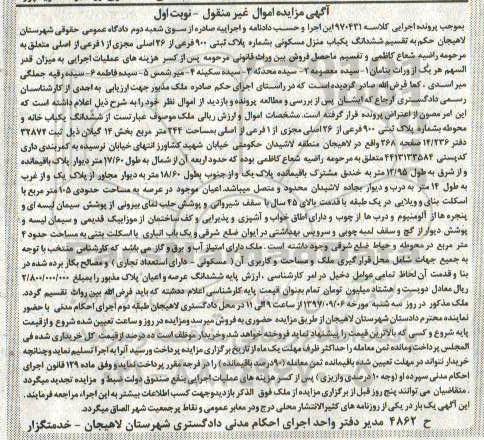 آگهی مزایده اموال غیر منقول - نوبت اول
بموجب پرونده اجرایی کلاسه ۹۷۰۴۳۱ این اجرا و حسب دادنامه و اجراییه صادره از سوی شعبه دوم دادگاه عمومی حقوقی شهرستان
لاهیجان حکم به تقسیم ششدانگ یکباب منزل مسکونی بشماره پلاک ثبتی ۹۰۰ فرعی از ۲۶ اصلی مجزی از ۱ فرعی از اصلی متعلق به
مرحومه راضیه شعاع کاظمی و تقسیم ماحصل فروش بین وراث قانونی مرحومه پس از کسر هزینه های عملیات اجرایی به میزان قدر
السهم هر یک از وراث بنامان ۱- سیده معصومه ۲- سیده محدثه ۳- سیده سکینه ۴- میر شمس ۵- سیده فاطمه ۶- سیده رقیه جملگی
میر اسدی ، کما فرض الله صادر گردیده است که در راستای اجرای حکم صادره ملک مذکور جهت ارزیابی به احدی از کارشناسان
رسمی دادگستری ارجاع که ایشان پس از بررسی و مطالعه پرونده و بازدید از اموال نظر خود را به شرح ذیل اعلام داشته است که
این امر مصون از اعتراض پرونده قرار گرفته است. مشخصات اموال و ارزش ریالی ملک موصوف عبارتست از ششدانگ یکباب خانه و
محوطه بشماره پلاک ثبتی ۹۰۰ فرعی از ۲۶ اصلی مجزی از ۱ فرعی از اصلی بمساحت ۲۴۴ متر مربع بخش ۱۴ گیلان ذیل ثبت ۳۲۸۷۴
دفتر ۱۴/۲۳۶ صفحه ۲۶۸ واقع در لاهیجان منطقه لاشیدان حکومتی خیابان شهید کشاورز انتهای خیابان نرسیده به کمربندی دارای
کدپستی ۴۴۱۳۱۳۳۵۸۴ متعلق به مرحومه راضیه شعاع کاظمی بوده که حدود اربعه آن از شمال به طول ۱۷/۶۰ متر دیوار پلاک باقیمانده
و از شرق به طول ۱۳/۹۵ متر به خندق مشترک باقیمانده پلاک یک و از جنوب بطول ۱۸/۶۰ متر به دیوار مجاور از پلاک یک و از غرب
به طول ۱۴ متر به درب و دیوار بجاده لاشیدان محدود و متصل میباشد. اعیان موجود در عرصه به مساحت حدودی ۱۰۵ متر مربع با
اسکلت بنای و ویلایی در یک طبقه با قدمت بالای ۴۵ سال با سقف شیروانی و پوشش حلب نمای بیرونی از پوشش سیمان لیسه ای و
پنجره ها از آلومنیوم و درب ها از چوب و دارای اطاق خواب و آشپزی و پذیرایی و کف ساختمان از موزاییک قدیمی و سیمان لیسه و
پوشش دیوار از گچ و سقف لمبه چوبی و سرویس بهداشتی در ایوان ضلع شرقی و یک باب انباری با اسکلت بنتی به مساحت حدود ۴
متر مربع در محوطه و حیاط ضلع شرقی وجود داشته است . ملک دارای امتیاز آب و برق و گاز می باشد که کارشناس منتخب با توجه
به جمیع جهات شامل محل قرار گیری ملک و مساحت و کاربری آن ( مسکونی - دارای استعداد تجاری ) و مصالح بکار برده شده در
بنا و قدمت آن لحاظ تمامی عوامل دخیل در امر کارشناسی ، ارزش پایه ششدانگ عرصه و اعیان پلاک مذکور را بمبلغ ۲/۸۰۰/۰۰۰/۰۰۰
ریال معادل دویست و هشتاد میلیون تومان تمام بعنوان قیمت پایه کارشناسی اعلام داشته که باید فرض الله بین وراث تقسیم گردد.
ملک مذکور در روز سه شنبه مورخه ۱۳۹۷/۰۹/۰۶ از ساعت ۹ الی ۱۱ در محل دادگستری لاهیجان طبقه دوم اجرای احکام مدنی با حضور
نماینده محترم دادستان شهرستان لاهیجان از طریق مزایده حضوری به فروش میرسد و مزایده در روز و ساعت تعیین شده شروع و از قیمت
پایه شروع و کسی که بالاترین قیمت را پیشنهاد نماید فروخته خواهد شد و خریدار موظف است ده درصد از قیمت کل خریداری شده فی
المجلس پرداخت و مانده ثمن معامله را حداکثر ظرف مهلت یک ماه از تاریخ برگزاری مزایده پرداخت و رسید آنرا به اجرا تسلیم نماید و چنانچه
خریدار نتواند در مهلت تعیین شده باقیمانده ثمن معامله (۹۰ درصد باقیمانده) را در فرجه مقرر پرداخت نماید و وفق ماده ۱۲۹ قانون اجرای
احکام مدنی سپرده او (وجه ۱۰ درصدی واریزی ) پس از کسر هزینه های عملیات اجرایی بنفع صندوق دولت ضبط و مزایده تجدید میگردد
، متقاضیان می توانند پنج روز قبل از برگزاری مزایده از ملک فوق الذکر بازدید و جهت کسب اطلاعات بیشتر به این اجراء مراجعه فرمایند.
این آگهی یک بار در یکی از روزنامه های کثیرالانتشار محلی درج و در معابر عمومی و نقاط پر جمعیت شهر الصاق میگردد.
ح ۴۸۶۲ مدیر دفتر واحد اجرای احکام مدنی دادگستری شهرستان لاهیجان - خدمتگزار